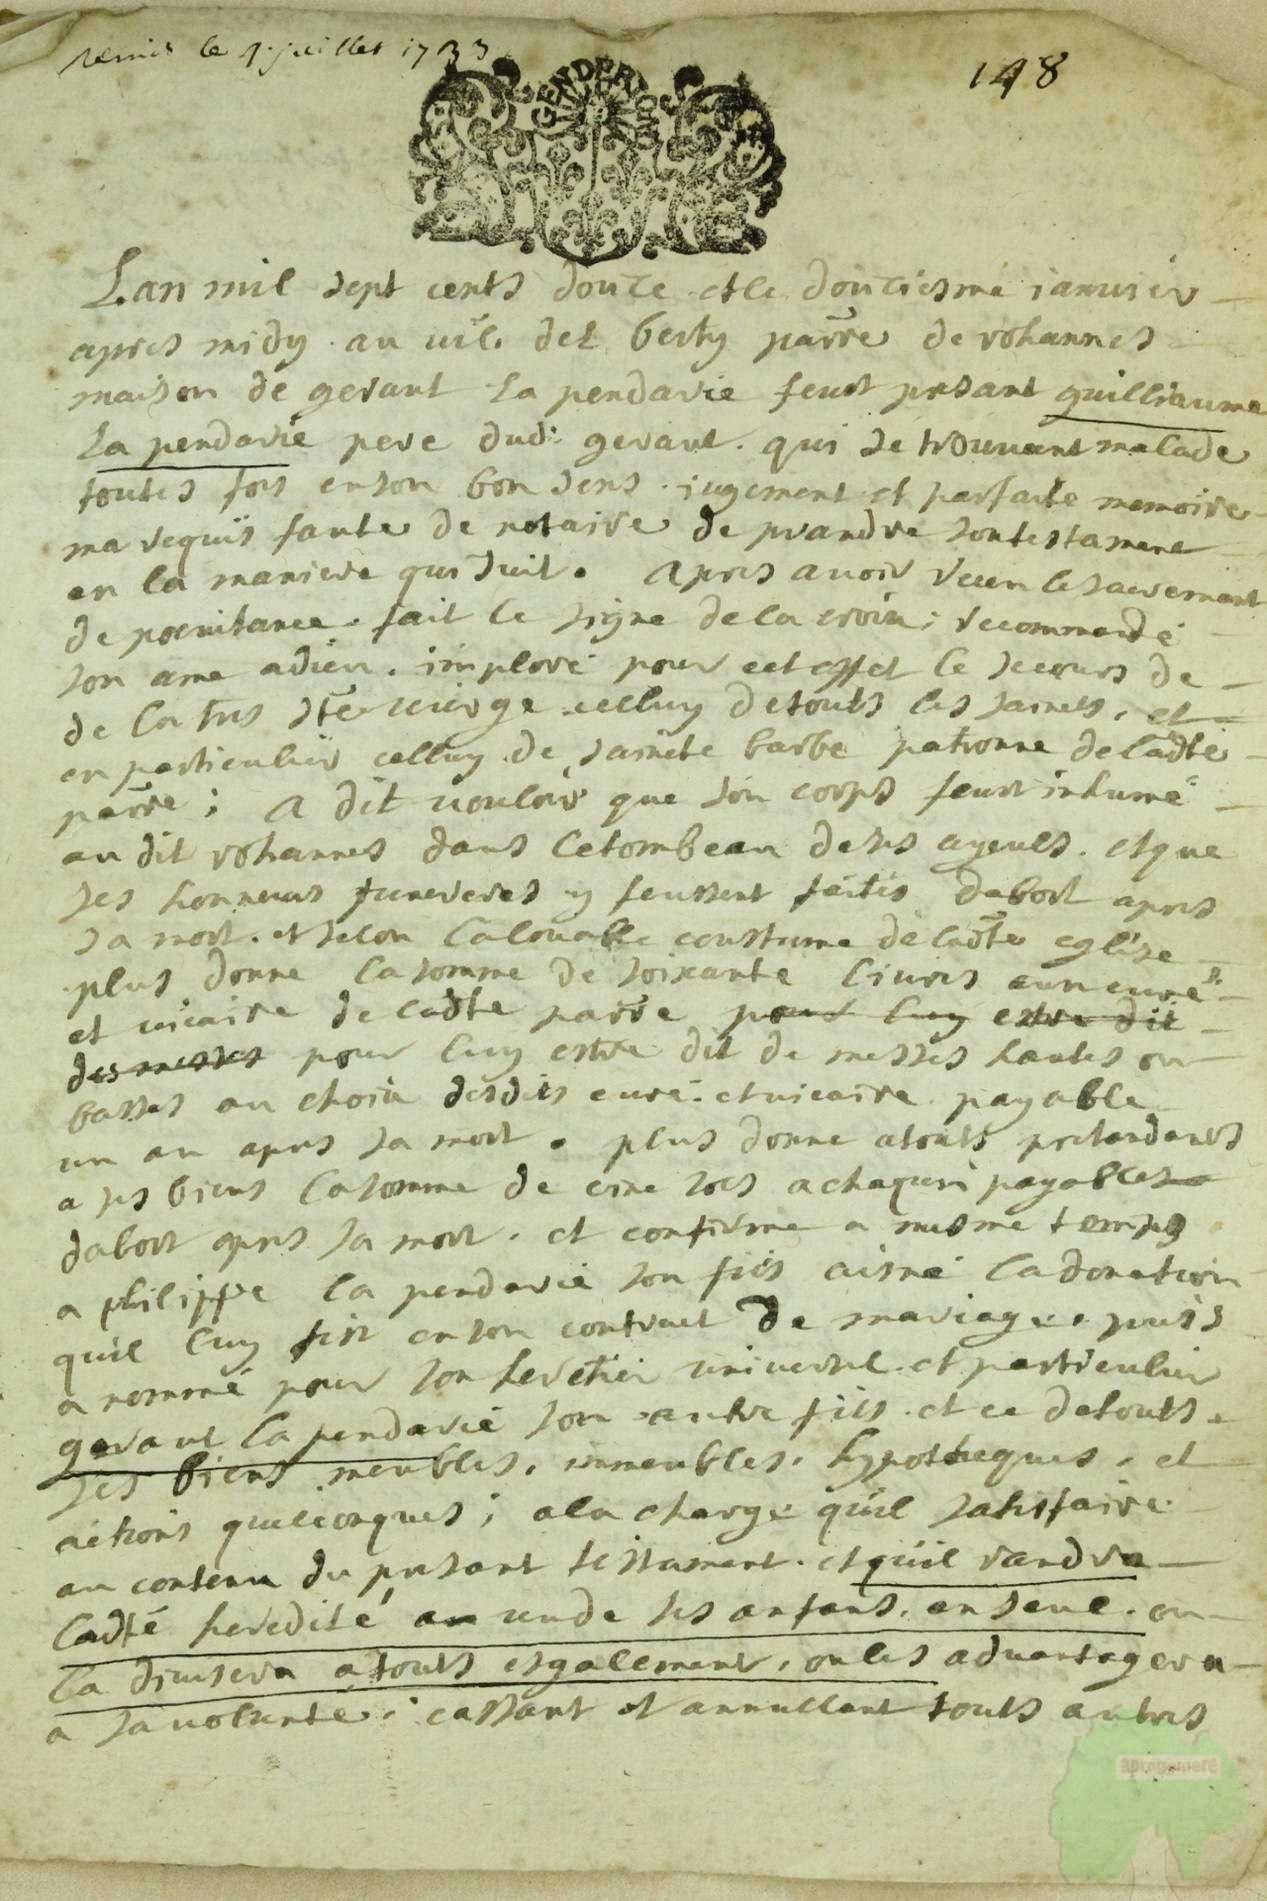 remis le 4 juillet 1733
148
GEN DE PRIX UNG
Lan mil sept cents douze et le douziesme janvier
apres midy au vill. del berty parre de rohannes
maison de geraut la pendarie feust presant guilliaume
la pendarie pere dud. geraut. qui se trouvant malade
toutes fois en son bon sens. jugement et parfaite memoire
ma requis faute de notaire de prandre son testament
en la maniere qui suit. Apres avoir receu le sacrement
de poenitance. fait le signe de la croix; recommandé
son ame a dieu. imploré pour cet effet le secours de
de la tres ste vierge celluy de touts les saincts, et
en particulier celluy de saincte barbe patronne de ladte
parre; A dit vouloir que son corps feust inhumé
au dit rohannes dans le tombeau de ses ayeuls. et que
ses honneurs funereres y feussent faites dabort apres
sa mort. et selon la louable coustume de ladte eglise
plus donne la somme de soixante livres aux curé
et vicaire de ladte parre pour luy estre dit
des messes pour luy estre dit de messes hautes ou
basses au choix desdits curé. et vicaire payable
un an apres sa mort. plus donne a touts pretandants
a ses biens la somme de cinc sols a chaqun payables
dabort apres sa mort. et confirme a mesme temps
a philippe la pendarie son fils aisné la donation
quil luy fist en son contract de mariage. puis
a nommé pour son heretier universel et particulier
geraut la pendarie son autre fils. et ce de touts
ses biens meubles, immeubles, hypotheques, et
actions quelconques; a la charge quil satisfaire
au contenu du presant testament. et quil randra
ladte heredité a un de ses anfans, en seul. ou
la divisera a touts esgalement, ou les advantagera
a sa volunté; cassant et annullant touts autres
aprogemere